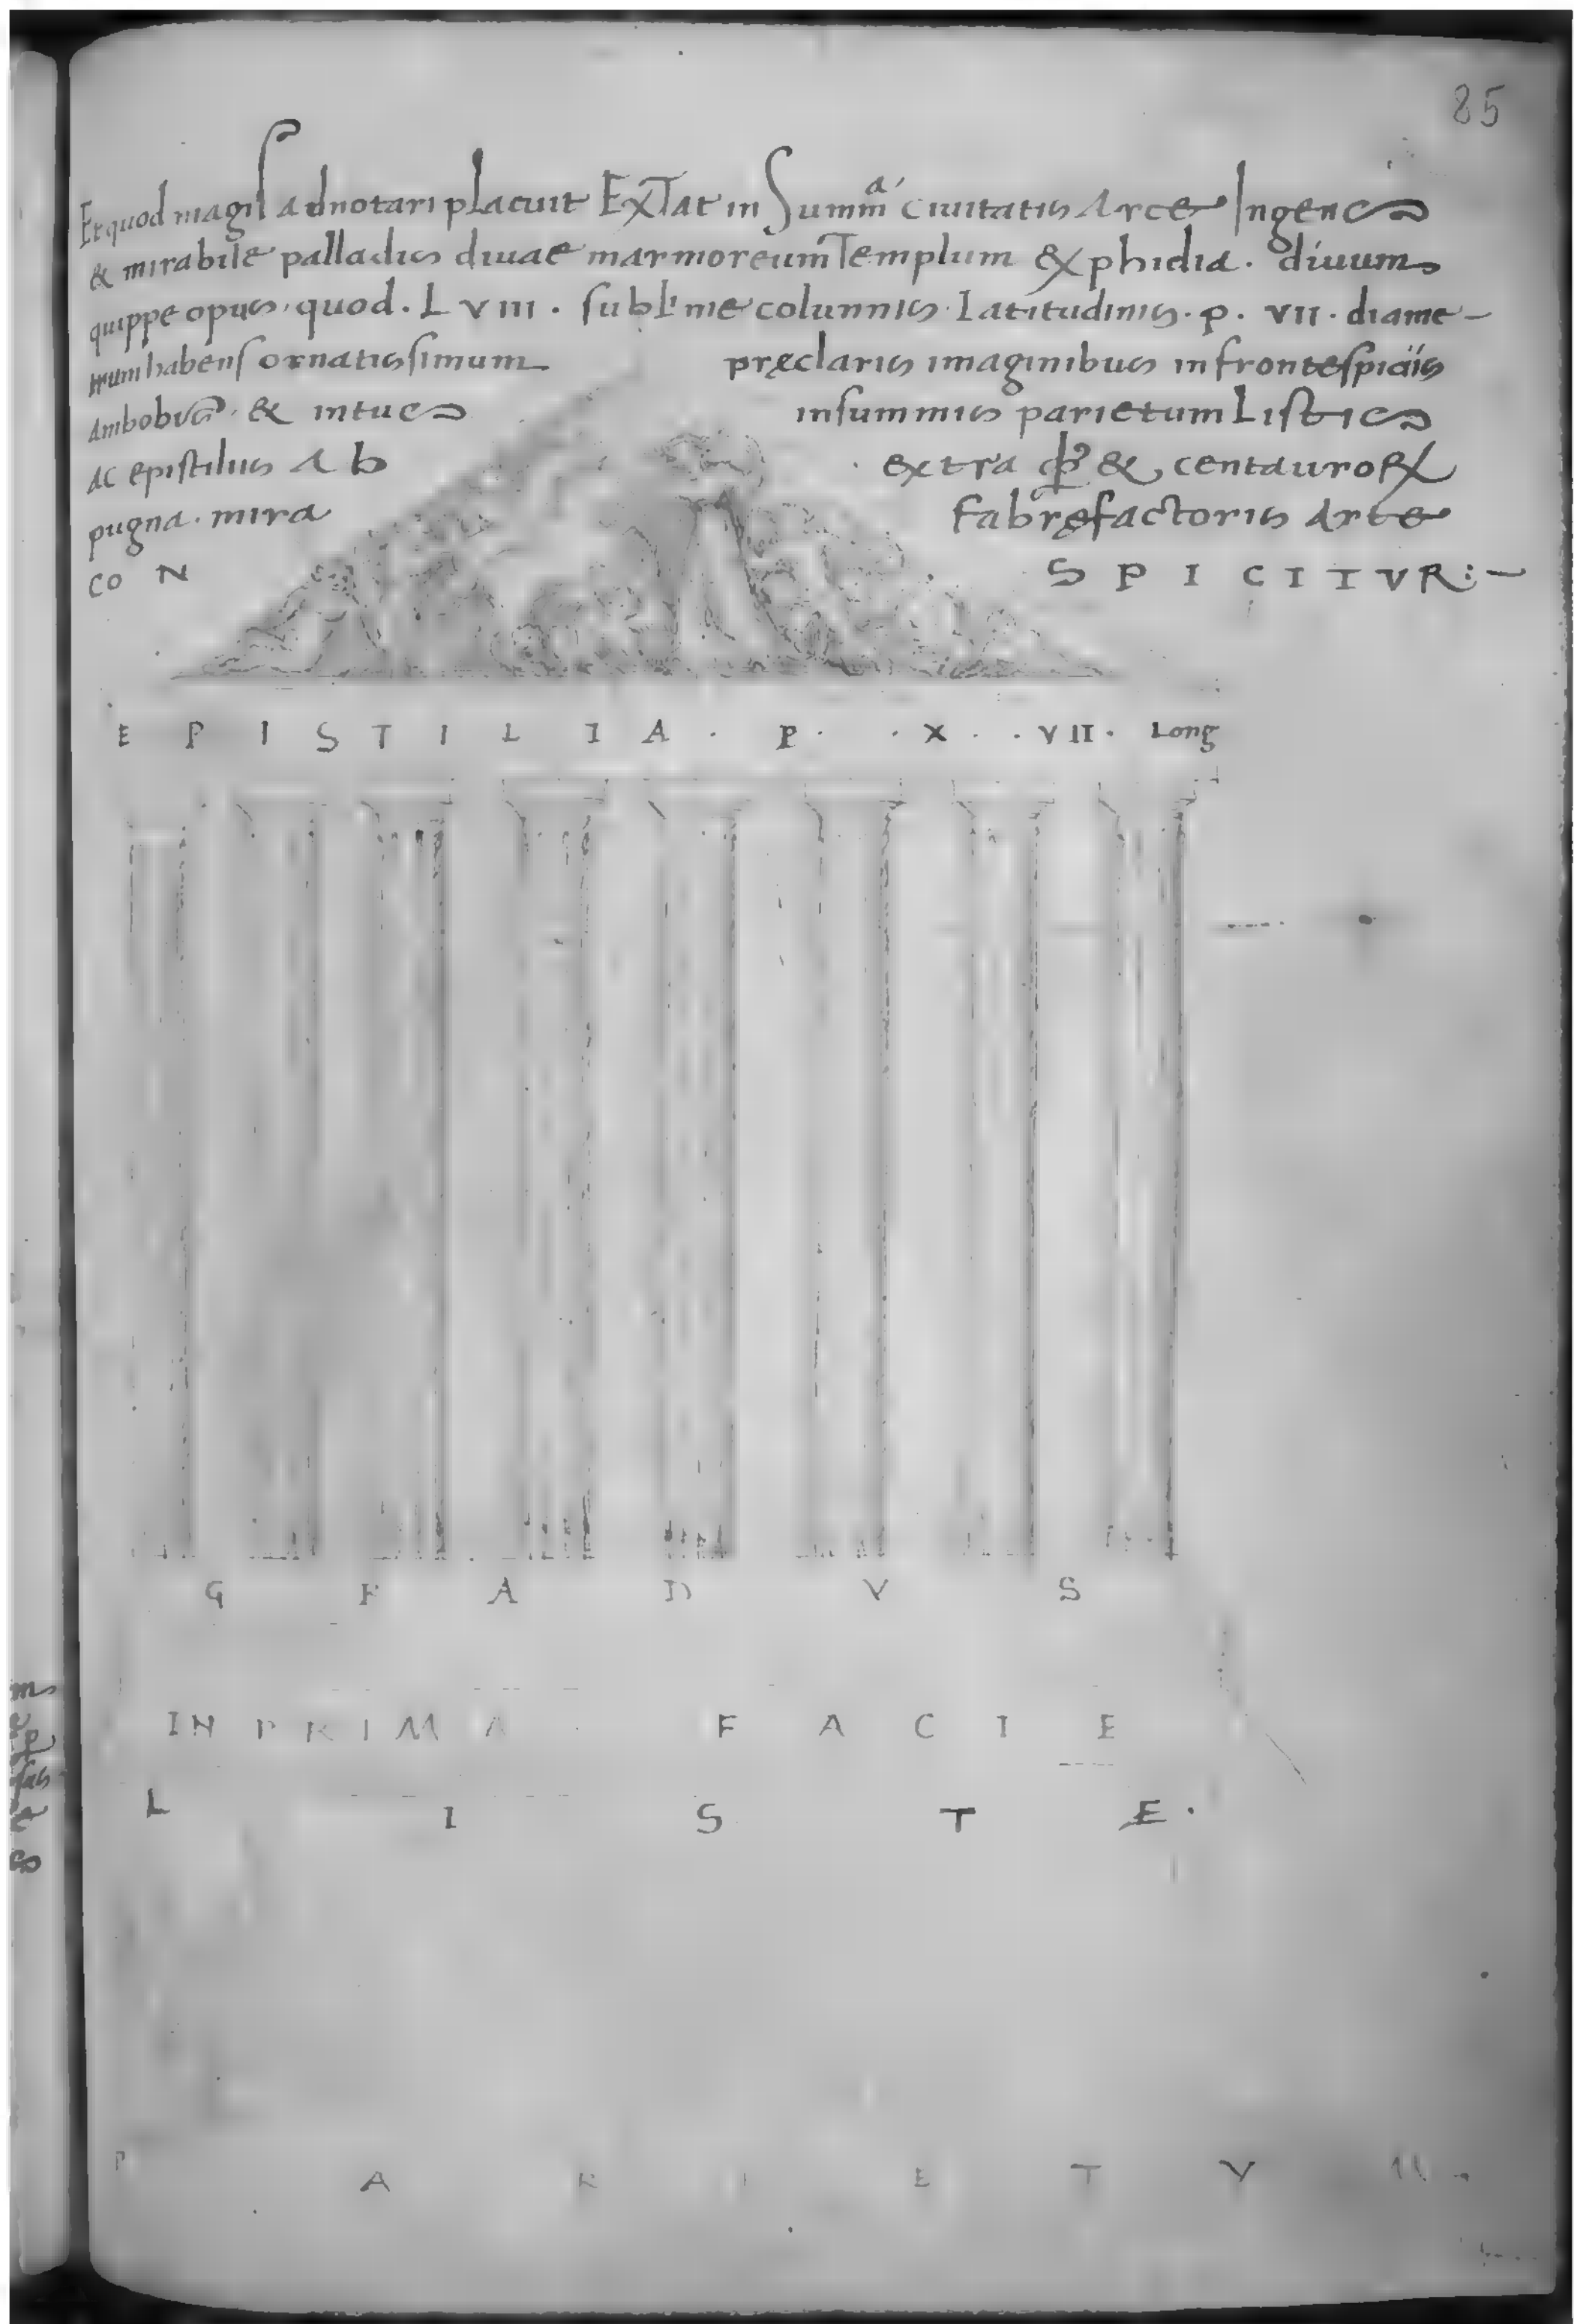 85
Et quod magis adnotari placuit Extat in summa civitatis Arce Ingens
& mirabile palladis divae marmoreum Templum & phidia. divum
quippe opus. quod. L VIII. sublime columnis. Latitudinis. p. VII. diame-
trum habens ornatissimum preclaris imaginibus in frontespiciis
Ambobus. & intus in summis parietum Listis
Ac epistiliis Ab extra & centauroꝝ
pugna. mira fabrefactoris Arte
CON SPICITVR:-
EPISTILIA. P. X. VII. Long
GRADVS
IN PRIMA FACIE
LISTE.
PARIETV